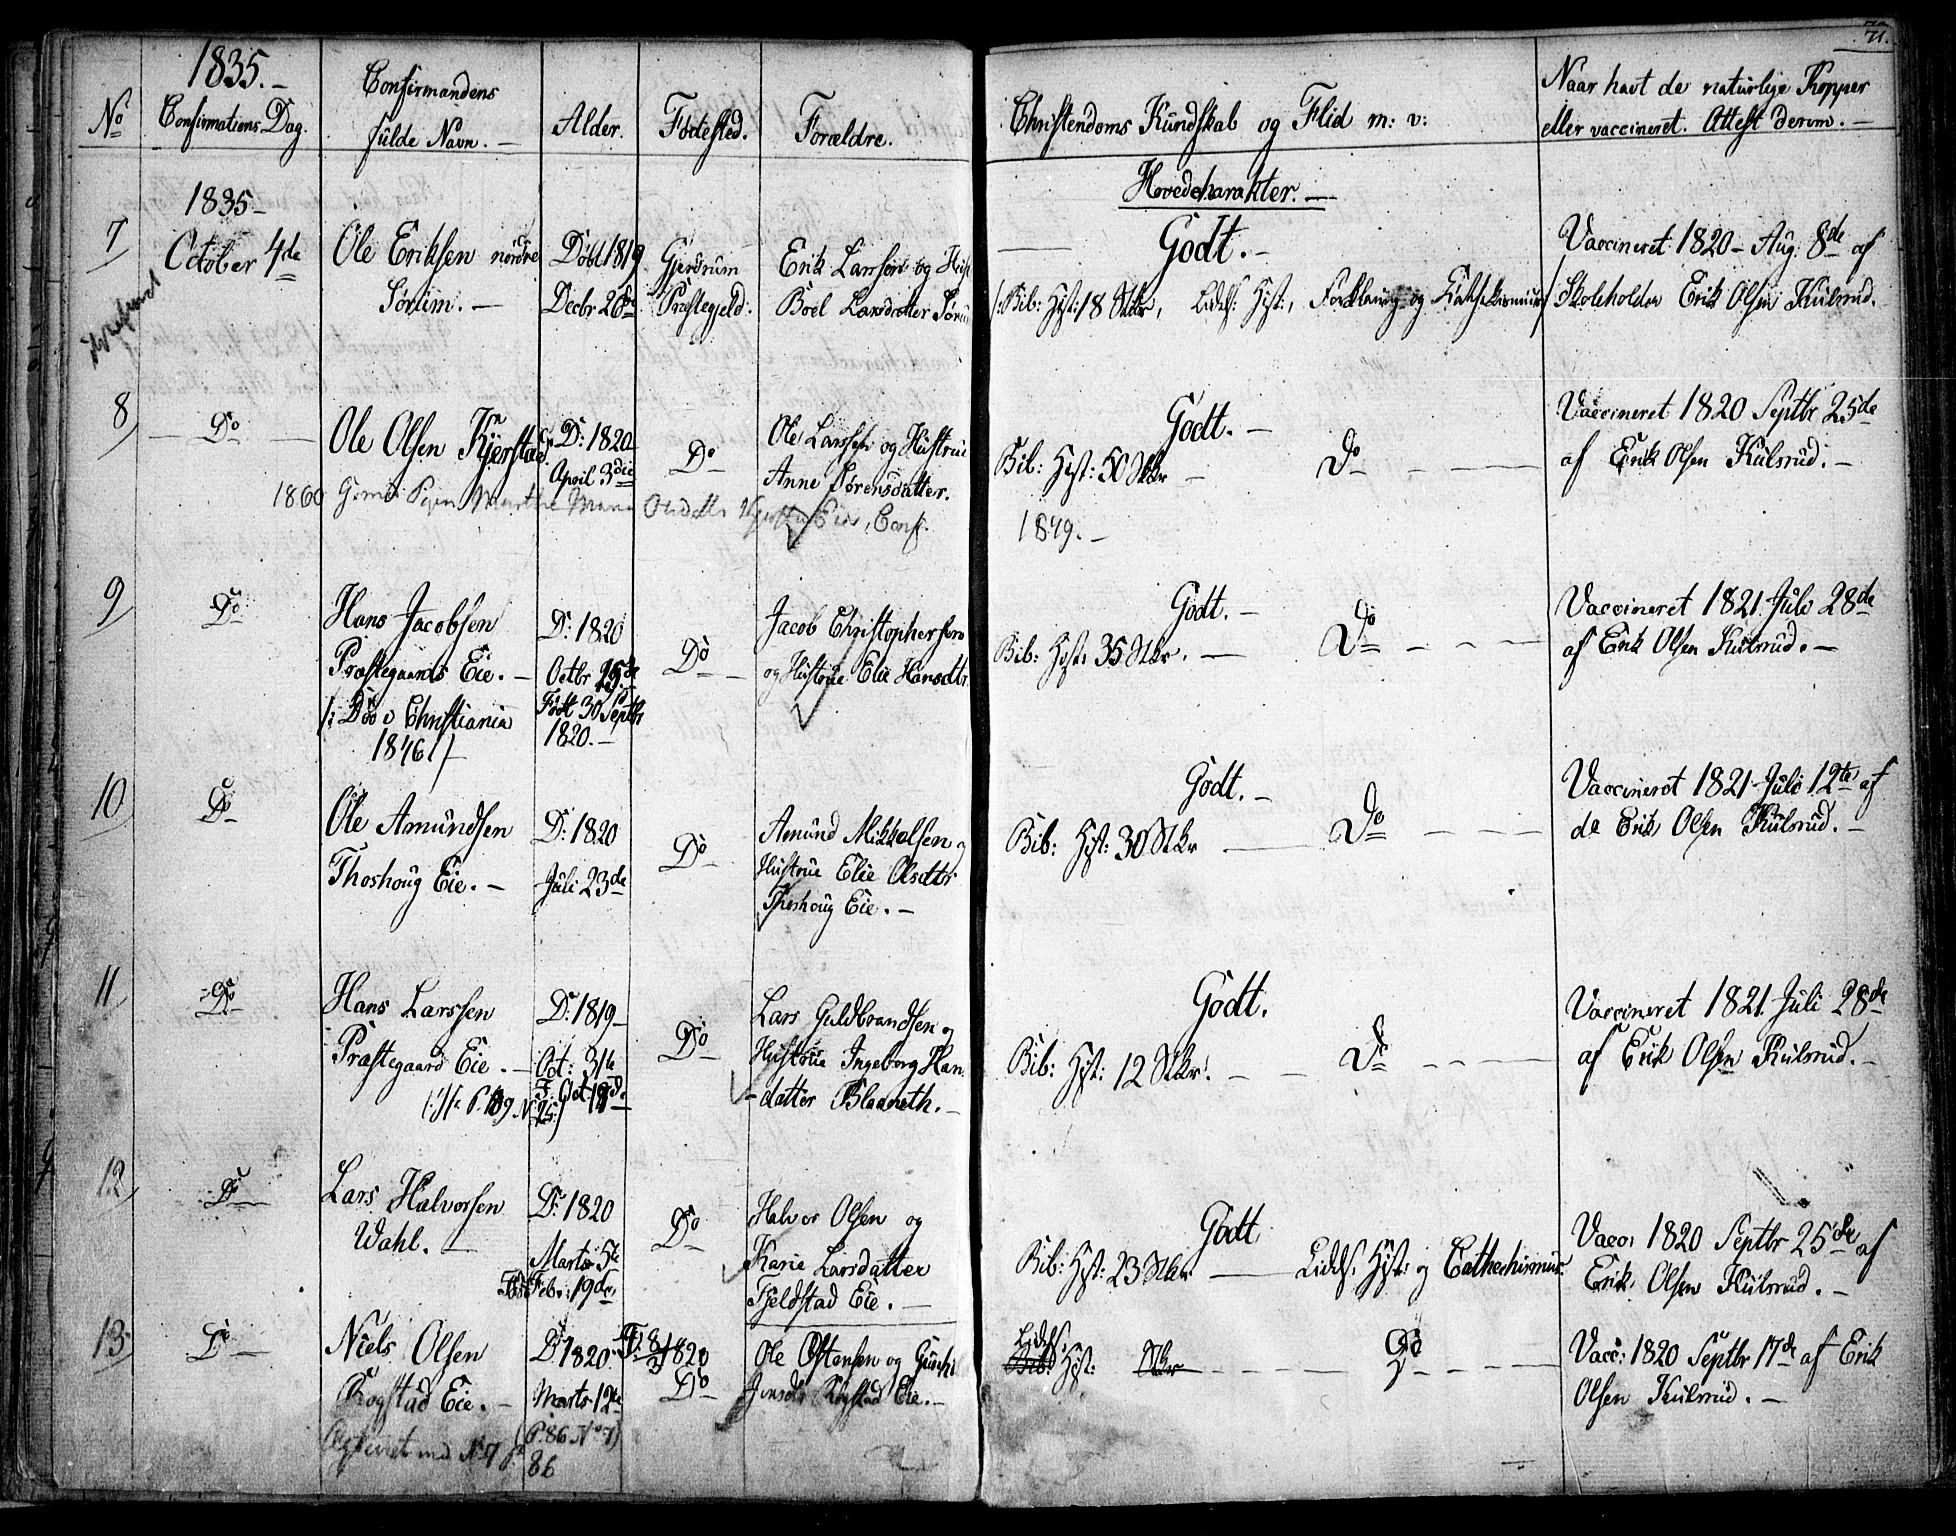 71.
1835.-
No
Confirmations Dag.
Confirmandens
fulde Navn. -
Alder.
Fødested.
Forældre.
Christendoms Kundskab og Flid m: v:
Naar havt de naturlige Kopper
eller vaccineret. Attest derom. -
1835-
Hovedcharakter. -
7
October 4de
Ole Eriksen nordre
Sørum. -
Døbt 1819
Decbr 26de
Gjerdrum
Præstegjeld.
Erik Larssen og
Boel Larsdatter
Godt. -
/: Bib: Hist: 18 Stkr, Lidds: Hist:, Forklaring og Cathekismus /
Vaccineret 1820 - Aug. 8de af
Skoleholder Erik Olsen Kulsrud.
8
Do
Ole Olsen Kjerstad
D: 1820
April 3die
Do
Ole Larssen og Hustrue
Anne Sørensdatter.
Godt. -
Bib: Hist: 50 Stkr - Do
Vaccineret 1820 Septbr 25de
af Erik Olsen Kulsrud. -
1860 Marthe Maria Eie, Conf.
1849. -
9
Do
Hans Jacobsen
Præstegaards Eie. -
/: Død i Christiania
1846 /
D: 1820
Octbr 15de
Født 30 Septbr
1820. -
Do
Jacob Christophersen
og Hustrue Elie Hansdtr.
Godt. -
Bib: Hist: 35 Stkr. - Do
Vaccineret 1821 Juli 28de
af Erik Olsen Kulsrud. -
10
Do
Ole Amundsen
Thoshoug Eie. -
D: 1820
Juli 23de
Do
Amund Mikkelsen og
Hustrue Elie Olsdtr
Thoshoug Eie. -
Godt. -
Bib: Hist: 30 Stkr - Do
Vaccineret 1821 Juli 12te af
de Erik Olsen Kulsrud. -
11
Do
Hans Larssen
Præstegaard Eie. -
D: 1819
Oct: 31te
F. Oct 18de
Do
Lars Guldbrandsen og
Hustrue Ingeborg Han-
datter -
Godt.
Bib: Hist: 12 Stkr. - Do
Vaccineret 1821 Juli 28de
af Erik Olsen Kulsrud. -
12
Do
Lars Halvorsen
Wahl. -
D: 1820
Marts 5te
Febr: 19de
Do
Halvor Olsen og
Karie Larsdatter
Fjeldstad Eie. -
Godt
Bib: Hist: 23 Stkr - Lidds: Hist: og Cathechismus
Vacc: 1820 Septbr 25de af
Erik Olsen Kulsrud. -
13
Do
Niels Olsen
Rogstad Eie. -
D: 1820
Marts 12te
(P. 86 No 7)
F: 8/3 1820
Do
Ole Ostensen og
Rogstad Eie. -
Lidds:
Bib: Hist: Stkr - Do
Vacc: 1820 Septbr 17de af Erik
Olsen Kulsrud. -
med No 7 P.
86